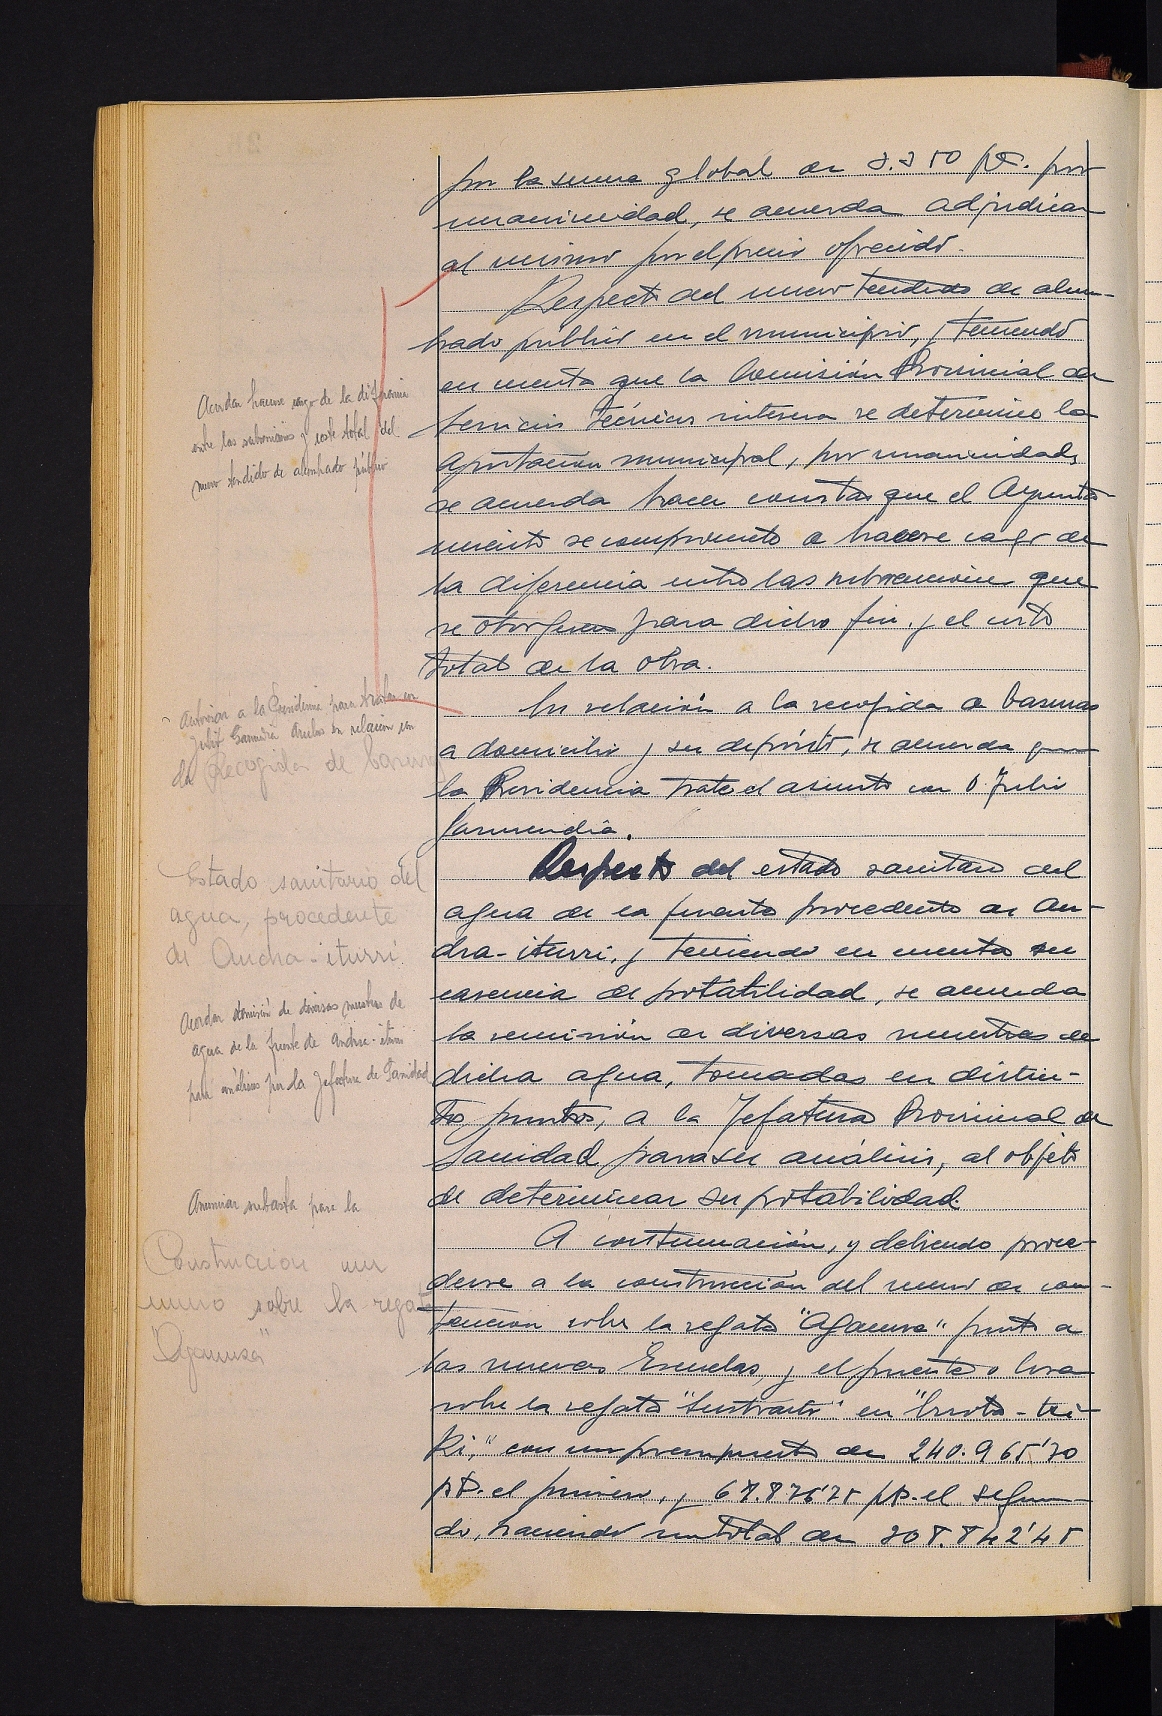 por la suma global de 3.350 pts. por
unanimidad, se acuerda adjudicar
al mismo por el precio ofrecido.
Respecto del nuevo tendido de alum-
brado público en el municipio, y teniendo
en cuenta que la Comisión Provincial de
Servicios Técnicos interesa se determine la
aportación municipal, por unanimidad,
se acuerda hacer constar que el Ayunta-
miento se compromete a hacerse cargo de
la diferencia entre las subvenciones que
se otorguen para dicho fin, y el costo
total de la obra.
En relación a la recogida de basuras
a domicilio y su depósito, se acuerda que
la Presidencia trate el asunto con D. Julio
Garmendia.
Respecto del estado sanitario del
agua de la fuente procedente de An-
dra-iturri, y teniendo en cuenta su
carencia de potabilidad, se acuerda
la remisión de diversas muestras de
dicha agua, tomadas en distin-
tos puntos, a la Jefatura Provincial de
Sanidad para su análisis, al objeto
de determinar su potabilidad.
A continuación, y debiendo proce-
derse a la construcción del muro de con-
tención sobre la regata "Agamusa" junto a
las nuevas Escuelas, y el puente o losa
sobre la regata en
ki," con un presupuesto de 240.965'70
pts. el primero, y 67.876'75 pts. el segun-
do, haciendo un total de 308.842'45
Acuerdan hacerse cargo de la diferencia
entre las subvenciones y coste total del
nuevo tendido de alumbrado público
Autorizar a la Presidencia para tratar con
Julio Garmendia en relación con
la Recogida de basuras
Estado sanitario del
agua, procedente
de Andra-iturri.
Acordar remisión de diversas muestras de
agua de la fuente de Andra-iturri
para análisis por la Jefatura de Sanidad
Anunciar subasta para la
Construcción un
muro sobre la regata
"Agamusa"